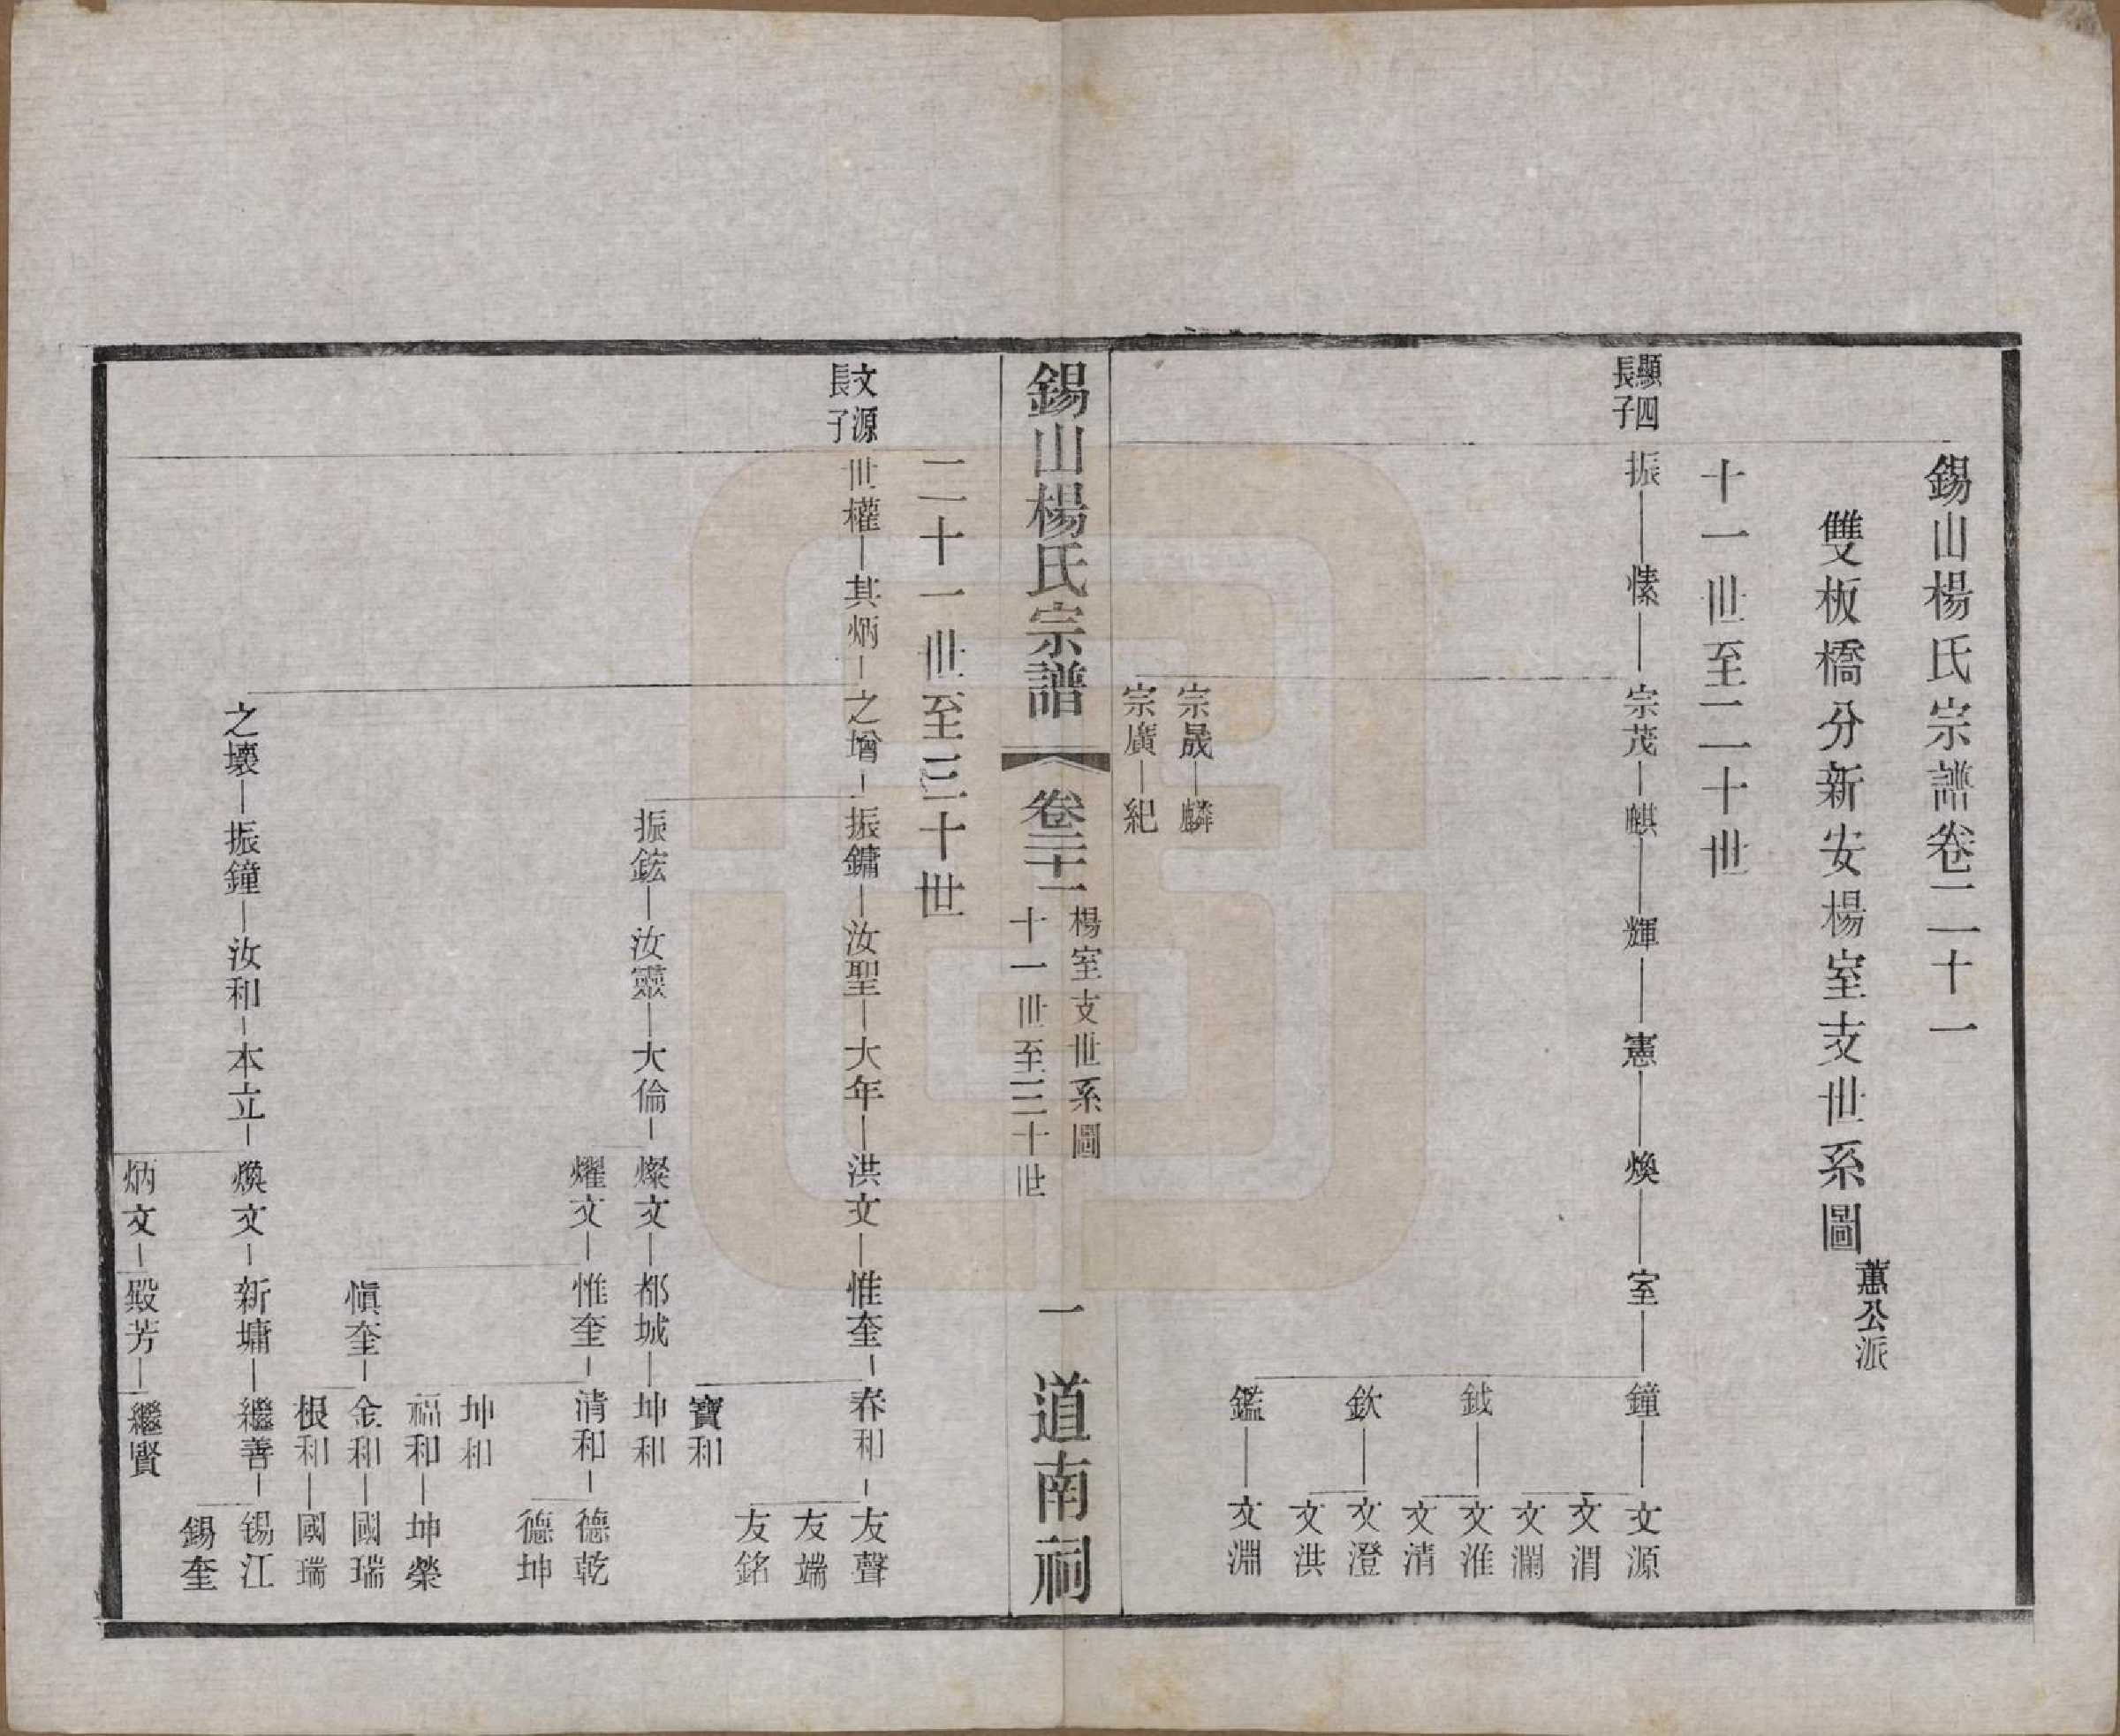 錫山楊氏宗譜卷二十一
雙板橋分新安楊室支世系圖 蕙公派
十一世至二十世
顯四長子 振 愫 宗茂 麒 輝 憲 煥 室 鐘 文源
文渭
文瀾
鉞 文淮
文清
欽 文澄
文洪
鑑 文淵
宗晟 麟
宗廣 紀
錫山楊氏宗譜 卷二十一 楊室支世系圖 十一世至三十世 一 道南祠
二十一世至三十世
文源長子 世權 其炳 之增 振鏞 汝聖 大年 洪文 惟奎 春和 友聲
友端
友銘
寶和
振鋐 汝靈 大倫 燦文 都城 坤和
燿文 惟奎 清和 德乾
德坤
坤和
福和 坤榮
愼奎 金和 國瑞
根和 國瑞
之壞 振鐘 汝和 本立 煥文 新墉 繼善 錫江
錫奎
炳文 殿芳 繼賢